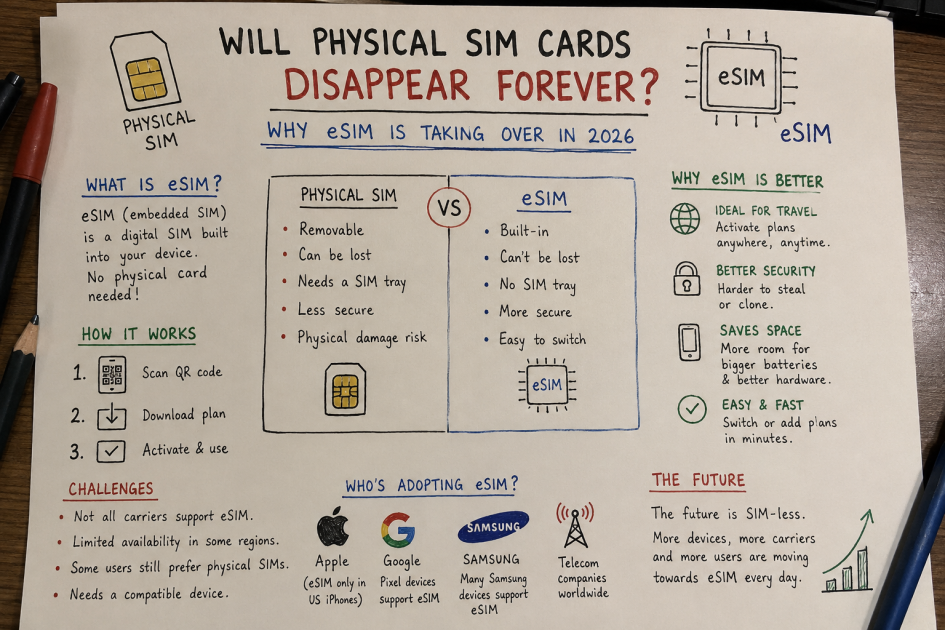 WILL PHYSICAL SIM CARDS
DISAPPEAR FOREVER?
WHY eSIM IS TAKING OVER IN 2026
PHYSICAL
SIM
eSIM
eSIM
WHAT IS eSIM?
eSIM (embedded SIM)
is a digital SIM built
into your device.
No physical card
needed!
HOW IT WORKS
1. Scan QR code
2. Download plan
3. Activate & use
PHYSICAL SIM
• Removable
• Can be lost
• Needs a SIM tray
• Less secure
• Physical damage risk
VS
eSIM
• Built-in
• Can't be lost
• No SIM tray
• More secure
• Easy to switch
eSIM
WHY eSIM IS BETTER
IDEAL FOR TRAVEL
Activate plans
anywhere, anytime.
BETTER SECURITY
Harder to steal
or clone.
SAVES SPACE
More room for
bigger batteries
& better hardware.
EASY & FAST
Switch or add plans
in minutes.
CHALLENGES
• Not all carriers support eSIM.
• Limited availability in some regions.
• Some users still prefer physical SIMs.
• Needs a compatible device.
WHO'S ADOPTING eSIM?
Apple
(eSIM only in
US iPhones)
G
Google
Pixel devices
support eSIM
SAMSUNG
SAMSUNG
Many Samsung
devices support
eSIM
Telecom
companies
worldwide
THE FUTURE
The future is SIM-less.
More devices, more carriers
and more users are moving
towards eSIM every day.